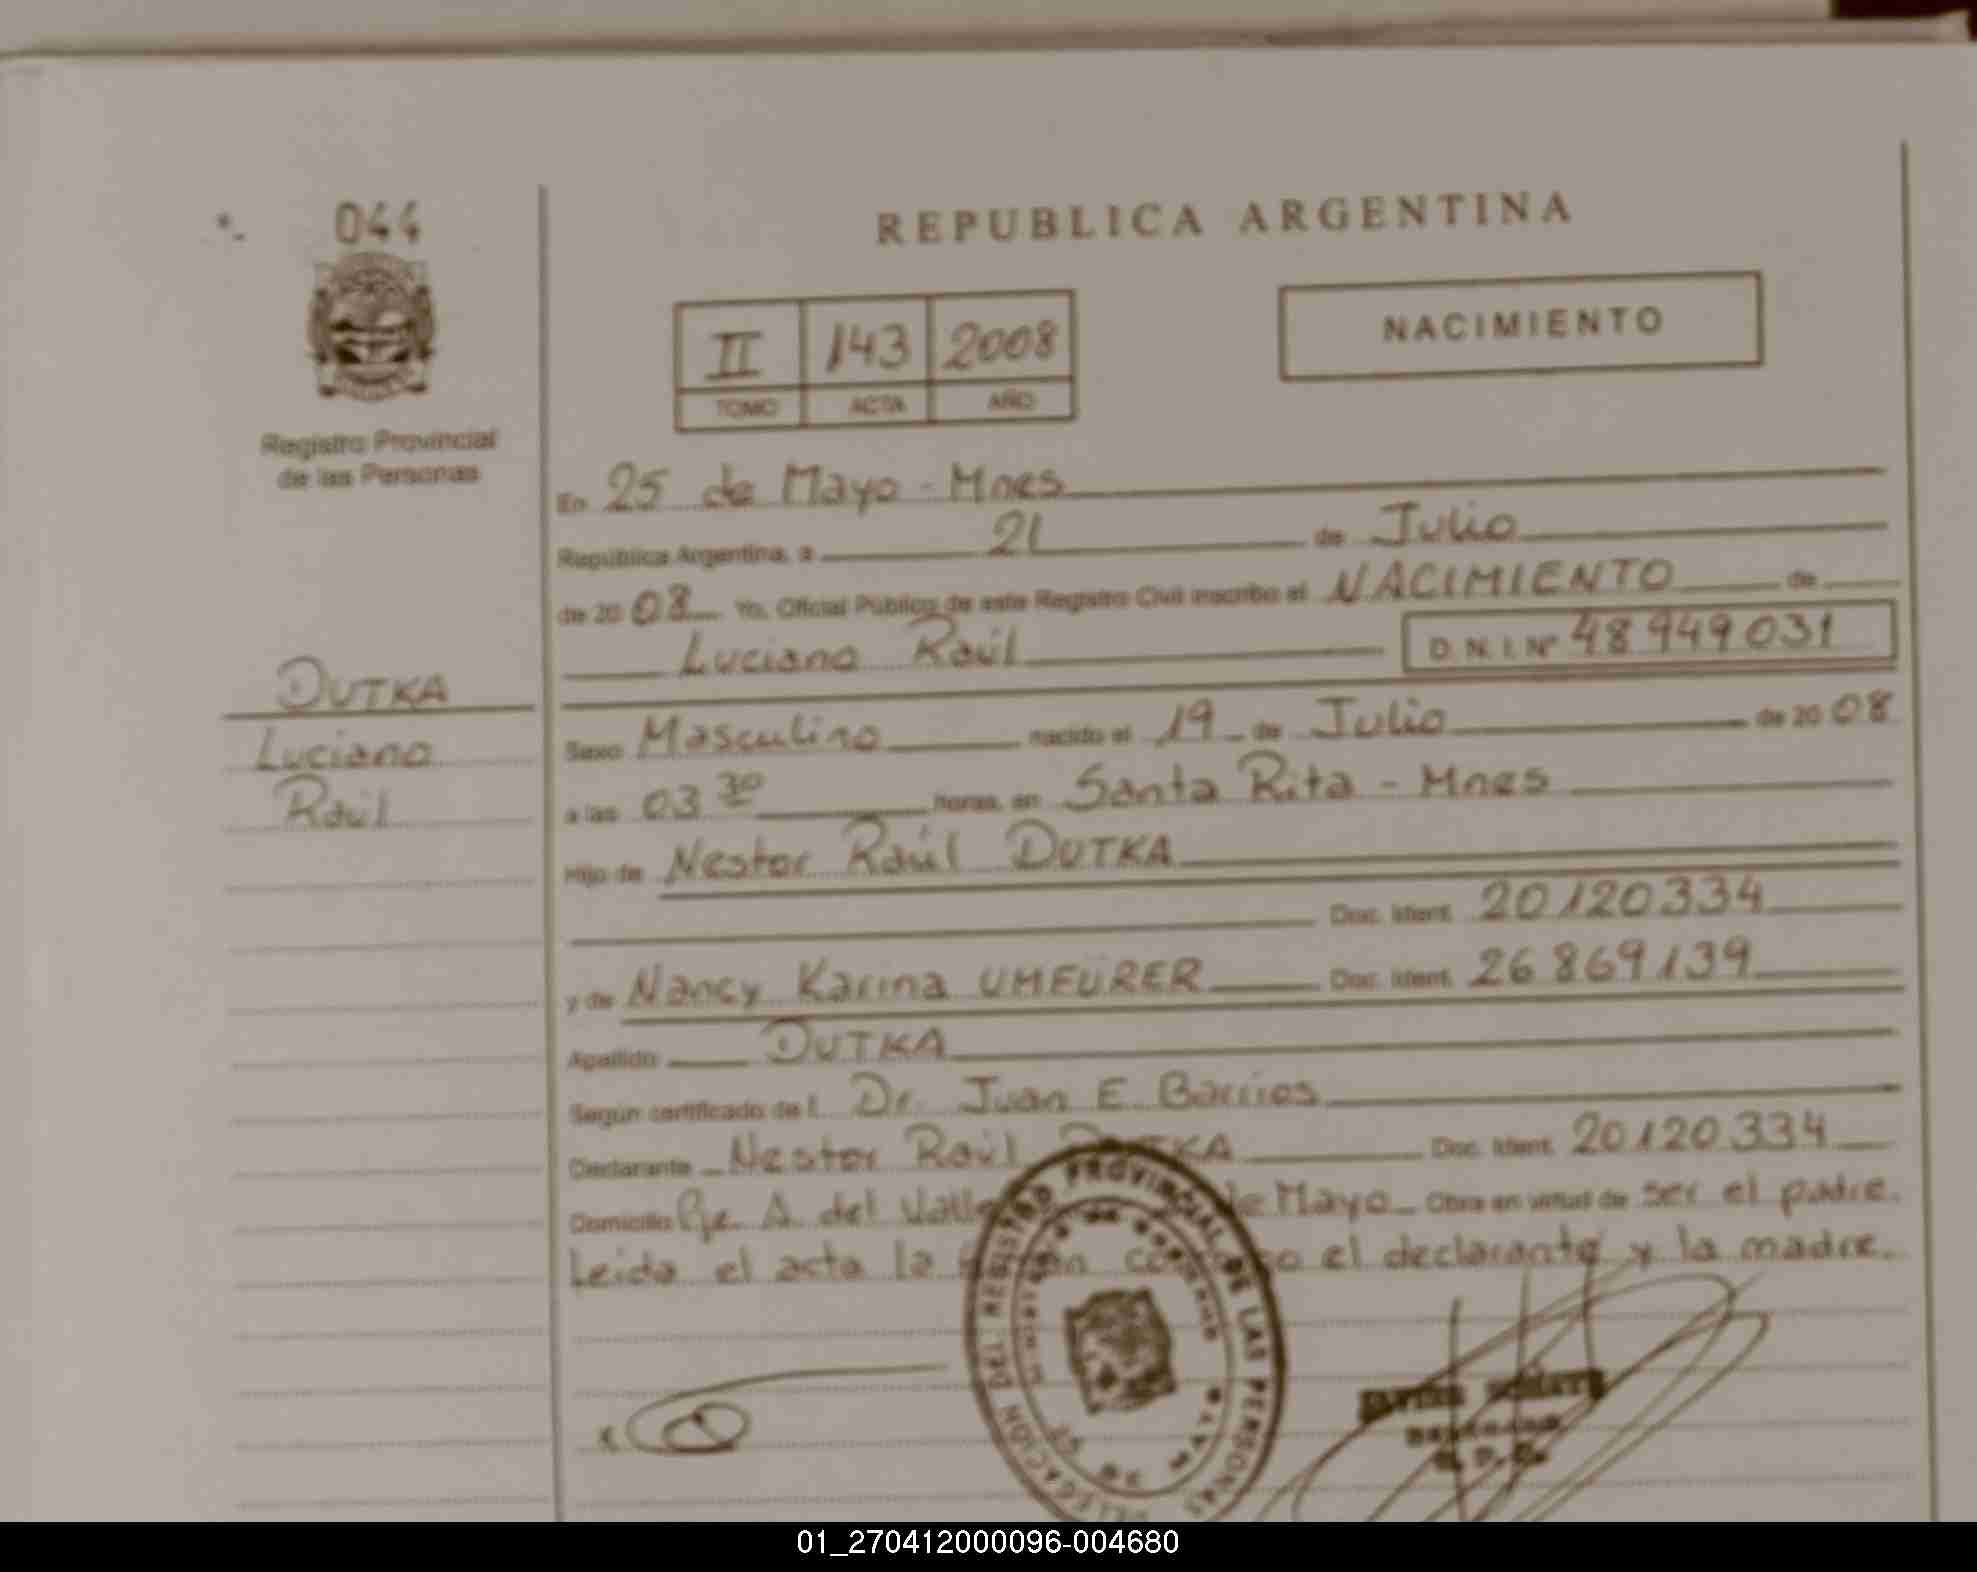 044
REPUBLICA ARGENTINA
II 143 2008
TOMO ACTA AÑO
NACIMIENTO
Registro Provincial
de las Personas
En 25 de Mayo - Mnes
República Argentina, a 21 de Julio
de 20 08 Yo, Oficial Público de este Registro Civil inscribo el NACIMIENTO de
Luciano Raúl D. N. I. Nº 48 949 031
DUTKA
Luciano
Raúl
Sexo Masculino nacido el 19 de Julio de 20 08
a las 03 30 horas, en Santa Rita - Mnes
Hijo de Nestor Raúl DUTKA
Doc. Ident. 20 120 334
y de Nancy Karina UMFÜRER Doc. Ident. 26 869 139
Apellido DUTKA
Según certificado del Dr. Juan E. Barrios
Declarante Nestor Raúl DUTKA Doc. Ident. 20 120 334
Domicilio Pje. A. del Valle de Mayo Obra en virtud de ser el padre.
Leida el acta la el declarante y la madre.
DELEGACION DEL REGISTRO PROVINCIAL DE LAS PERSONAS
25 DE MAYO
01_270412000096-004680